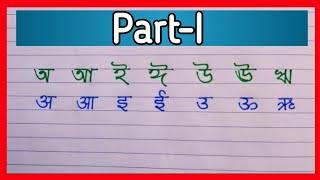 Part-I
অ আ ই ঈ উ ঊ ঋ
अ आ इ ई उ ऊ ऋ